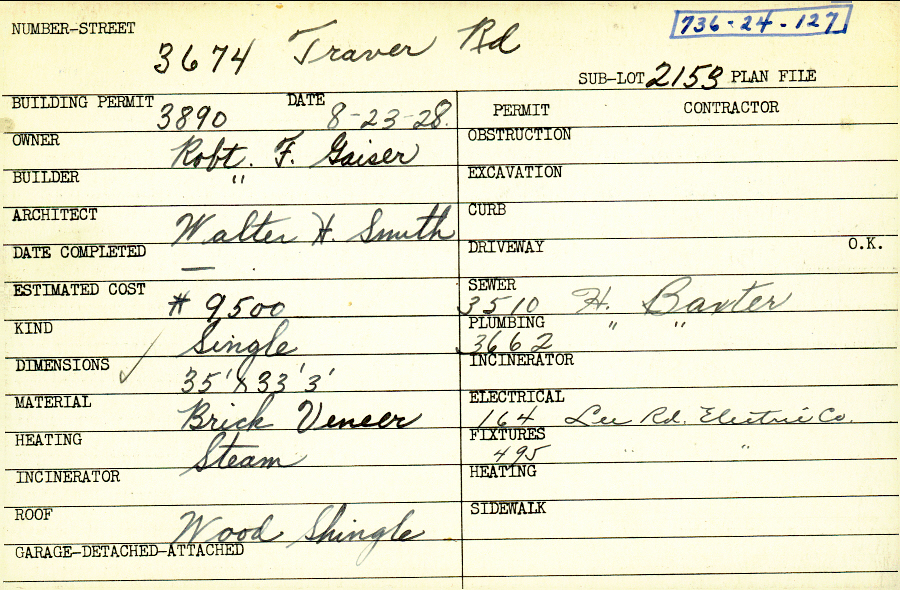 NUMBER-STREET 3674 Traver Rd
736-24-127
SUB-LOT 2153 PLAN FILE
BUILDING PERMIT 3890 DATE 8-23-28.
OWNER Robt. F. Gaiser
BUILDER "
ARCHITECT Walter H. Smith
DATE COMPLETED —
ESTIMATED COST $ 9,500
KIND Single
DIMENSIONS ✓ 35' X 33' 3'
MATERIAL Brick Veneer
HEATING Steam
INCINERATOR
ROOF Wood Shingle
GARAGE-DETACHED-ATTACHED
PERMIT CONTRACTOR
OBSTRUCTION
EXCAVATION
CURB
DRIVEWAY O.K.
SEWER 3510 H. Baxter
PLUMBING 3662 " "
INCINERATOR
ELECTRICAL 164 Lee Rd. Electric Co.
FIXTURES 495 " "
HEATING
SIDEWALK